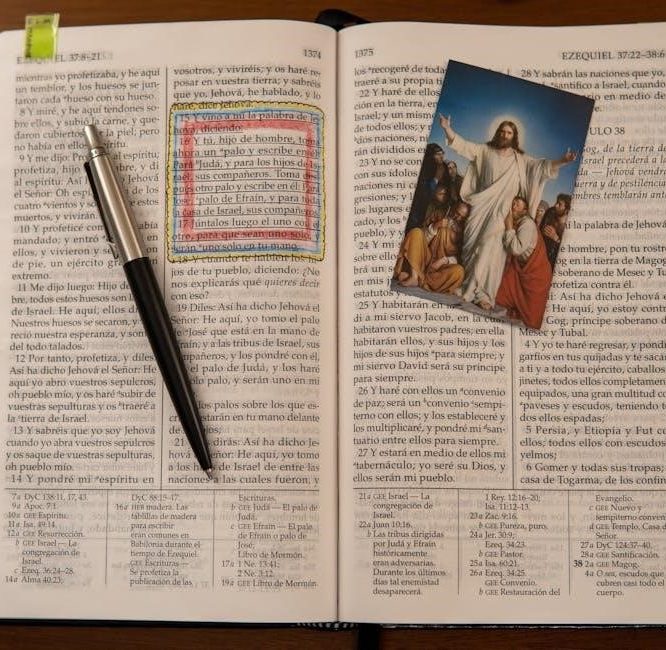 EL 37:8–21
1374
mientras yo profetizaba, y he aquí
un temblor, y los huesos se jun-
taron cada hueso con su hueso.
8 Y miré, y he aquí tendones so-
bre ellos, y subió la carne, y que-
daron cubiertos la piel; pero
no había en ellos espíritu.
9 Y me dijo: espíritu,
profetiza, hijo
al espíritu: Así
el Señor: Oh
cuatro vientos y
muertos, y vivirán.
10 Y profeticé había
mandado, y entró
ellos, y vivieron y
de pie, un ejército
extremo.
11 Me dijo luego: Hijo de
bre, todos estos huesos son la
de Israel. He aquí, ellos
Nuestros huesos se secaron, y
reció nuestra esperanza, y
del todo talados.
12 Por tanto, profetiza, y diles
Así ha dicho Jehová el Señor: He
aquí yo abro vuestros sepulcros,
oh pueblo mío, y os haré subir de
vuestras sepulturas y os traeré a
la tierra de Israel.
13 Y sabréis que yo soy Jehová
cuando yo abra vuestros sepulcros
y os saque de vuestras sepulturas,
oh pueblo mío.
14 Y pondré mi espíritu en
vosotros, y viviréis, y os haré re-
posar en vuestra tierra; y sabréis
que yo, Jehová, he hablado, y lo
hice, dice Jehová.
15 Y vino a mí la palabra de Je-
hová, diciendo:
16 Y tú, hijo de hombre, toma
ahora un palo y escribe en él:
Para Judá, y para los hijos de Is-
rael, sus compañeros. Toma
pués otro palo y escribe en él: Para
José, palo de Efraín, y para toda
la casa de Israel, sus compañeros.
17 Júntalos luego el uno con el
otro, para que sean uno solo,
serán uno solo en tu mano.
18 Y cuando te hablen los hi-
jos de tu pueblo, diciendo: ¿No
nos explicarás qué quieres decir
con eso?
19 Diles: Así ha dicho Jehová el
Señor: He aquí, yo tomo el palo
de José que está en la mano de
Efraín, y a las tribus de Israel, sus
compañeros, y los pondré con él,
el palo de Judá, y los haré
solo palo, y serán uno en mi
los palos sobre los que es-
estarán en tu mano delante
de ojos.
21 dirás: Así ha dicho Je-
hová Señor: He aquí, yo tomo
a los hijos de Israel de entre las
naciones a las cuales fueron, y
7a DyC 138:11, 17, 43.
9a Apoc. 7:1.
10a GEE Espíritu.
11a Isa. 49:14.
12a GEE Resurrección.
b GEE Israel — La
congregación de
Israel.
c Ezeq. 36:24–28.
14a Alma 40:23.
DyC 88:15–17.
16a HEB madera. Las
tablillas de madera
para escribir
eran comunes en
Babilonia durante el
tiempo de Ezequiel.
GEE Escrituras —
Se profetiza la
publicación de las
Escrituras.
b GEE Judá — El palo de
Judá.
c GEE Efraín — El palo
de Efraín o palo de
José.
Libro de Mormón.
17a 1 Ne. 13:41;
2 Ne. 3:12.
19a GEE Libro de Mormón.
1375
EZEQUIEL 37:22–38:6
los recogeré de todas
traeré a su propia
22 Y haré de ellos
ción en la tierra, en
Israel; y un mismo
de todos ellos; y
dos naciones, ni
án divididos en
23 Y no se con
con sus ídolos
naciones ni
gresiones; y
los lugares
cado, y los
pueblo y
24 Y mi
sobre ell
brá un s
en mis
estatuto
25 Y habitarán en la
di a mi siervo Jacob, en la cual
habitaron vuestros padres; en ella
habitarán ellos, y sus hijos y los
hijos de sus hijos para siempre; y
mi siervo David será su príncipe
para siempre.
26 Y haré con ellos un convenio
de paz; será un convenio sempi-
terno con ellos; y los estableceré y
los multiplicaré, y pondré mi san-
tuario entre ellos para siempre.
27 Y estará en medio de ellos mi
tabernáculo; yo seré su Dios, y
ellos serán mi pueblo.
28 Y sabrán las naciones que yo,
santifico a Israel, cuando
en medio de
ULO 38
Gog, de la tierra de
Israel precederá a l
— Jehová vendrá
erra y de pestilencia
hombres temblarán ant
la palabra de Jehová
hombre, pon tu rost
og en la tierra de Magog,
soberano de Mesec y Tu
profetiza contra él.
di: Así ha dicho Jehová e
He aquí, yo estoy contr
Gog, príncipe soberano d
Mesec y Tubal.
4 Y yo te haré regresar, y pond
garfios en tus quijadas y te sacaré
a ti y a todo tu ejército, caballos
jinetes, todos ellos completamen
equipados, una gran multitud co
paveses y escudos, teniendo to
dos ellos espadas;
5 Persia, y Etiopía y Fut co
ellos; todos ellos con escudos
yelmos;
6 Gomer y todas sus tropas;
casa de Togarma, de los confin
21a GEE Israel — La
congregación de
Israel.
22a Juan 10:16.
b Las tribus dirigidas
por Judá y Efraín
históricamente
eran adversarias.
Durante los últimos
días tal enemistad
desaparecerá.
1 Rey. 12:16–20;
Isa. 11:12–13.
23a Zac. 9:16.
b GEE Pureza, puro.
24a Jer. 30:9;
Ezeq. 34:23.
b GEE Pastor.
25a Isa. 60:21.
26a Ezeq. 34:25.
GEE Convenio.
b GEE Restauración del
Evangelio.
c GEE Nuevo y
sempiterno conveni
d GEE Templo, Casa d
Señor.
27a DyC 124:37–40.
28a GEE Santificación.
38 2a GEE Magog.
4a O sea, escudos que
cubren casi todo el
cuerpo.